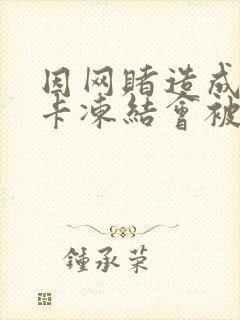 因网赌造成
卡凍結會被
鍾承荣